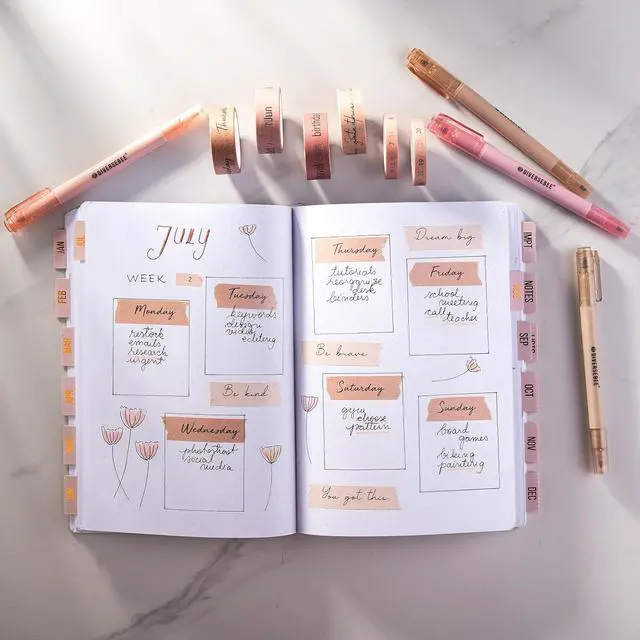 JULY
WEEK 2
Monday
restock
emails
research
urgent
Tuesday
keywords
design
video
editing
Be kind
Wednesday
photoshoot
social
media
Thursday
tutorials
reorganize
desk
binders
Dream big
Friday
school
meeting
call
teacher
Be brave
Saturday
gym
choose
pattern
Sunday
board
games
biking
painting
You got this
JAN
FEB
MAR
IMPT
NOTES
SEP
OCT
NOV
DEC
birthday
Jun
DIVERSEBEE
DIVERSEBEE
DIVERSEBEE
DIVERSEBEE